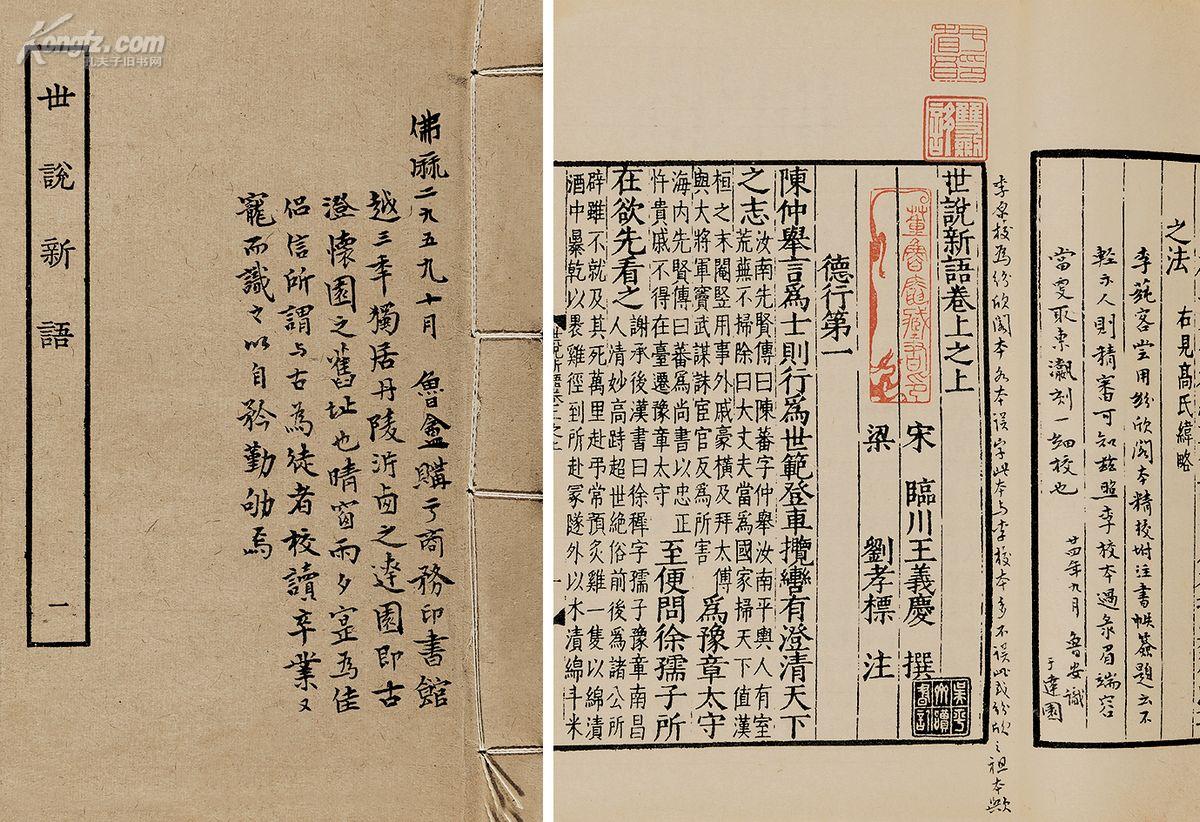 Kongfz.com
孔夫子旧书网
世說新語
一
佛厤二九五九十月 魯盦購于商務印書館
越三年獨居丹陵沜鹵之達園即古
澄懷園之舊址也晴窗雨夕寔爲佳
侶信所謂与古爲徒者校讀卒業又
寵而識之以自矜勤劬焉
之法 右見高氏緯略
李蒓客嘗用紛欣閣本精校坿注書帙簽題云不
輕示人則精審可知玆照李校本過彔眉端容
當更取東瀛刻一細校也
廿四年九月 魯安識
于達園
李校爲紛欣閣本多誤字此本与李校本多不誤此或紛欣之祖本歟
雙鑑
董魯盦藏書印
世說新語卷上之上
宋 臨川王義慶 撰
梁 劉孝標 注
德行第一
陳仲舉言爲士則行爲世範登車攬轡有澄清天下
之志汝南先賢傳曰陳蕃字仲舉汝南平輿人有室
荒蕪不掃除曰大丈夫當爲國家掃天下值漢
桓之末閹豎用事外戚豪橫及拜太傅
與大將軍竇武謀誅宦官反爲所害 爲豫章太守
海内先賢傳曰蕃爲尚書以忠正
忤貴戚不得在臺遷豫章太守 至便問徐孺子所
在欲先看之謝承後漢書曰徐穉字孺子豫章南昌
人清妙高跱超世絕俗前後爲諸公所
辟雖不就及其死萬里赴弔常預炙雞一隻以綿漬
酒中暴乾以裹雞徑到所赴冢隧外以水漬綿斗米
世說新語卷上之上